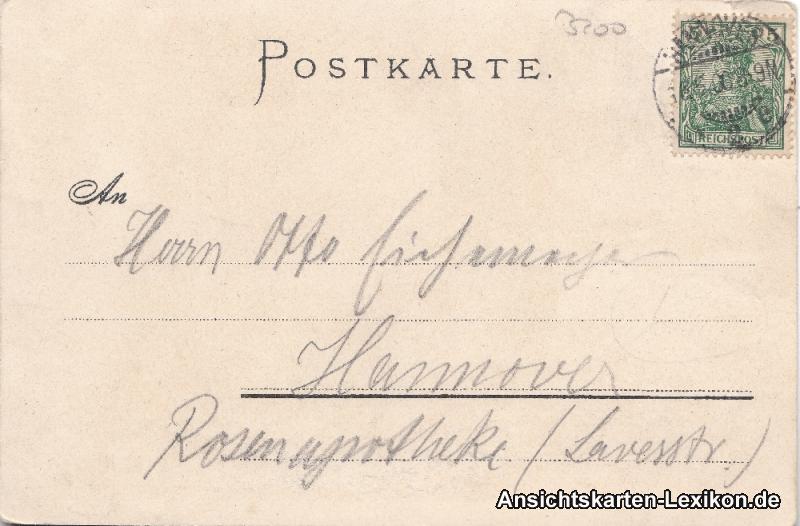 3200
POSTKARTE.
5
REICHSPOST
An
Herrn Otto
Hannover
Rosenapotheke (Lavesstr.)
Ansichtskarten-Lexikon.de